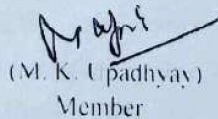 (M. K. Upadhyay)
Member